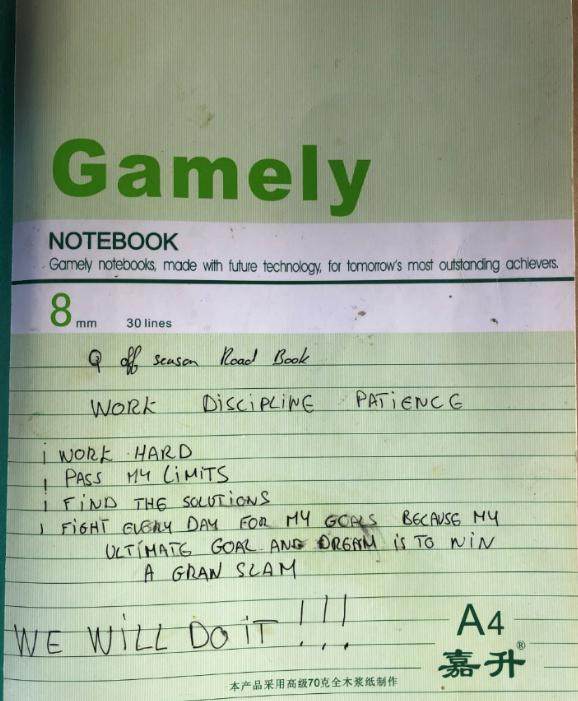 Gamely
NOTEBOOK
Gamely notebooks, made with future technology, for tomorrow's most outstanding achievers.
8 mm 30 lines
Q off season Road Book
WORK DISCIPLINE PATIENCE
I WORK HARD
I PASS MY LIMITS
I FIND THE SOLUTIONS
I FIGHT EVERY DAY FOR MY GOALS BECAUSE MY
ULTIMATE GOAL AND DREAM IS TO WIN
A GRAN SLAM
WE WILL DO IT !!!
A4
嘉升®
本产品采用高级70克全木浆纸制作